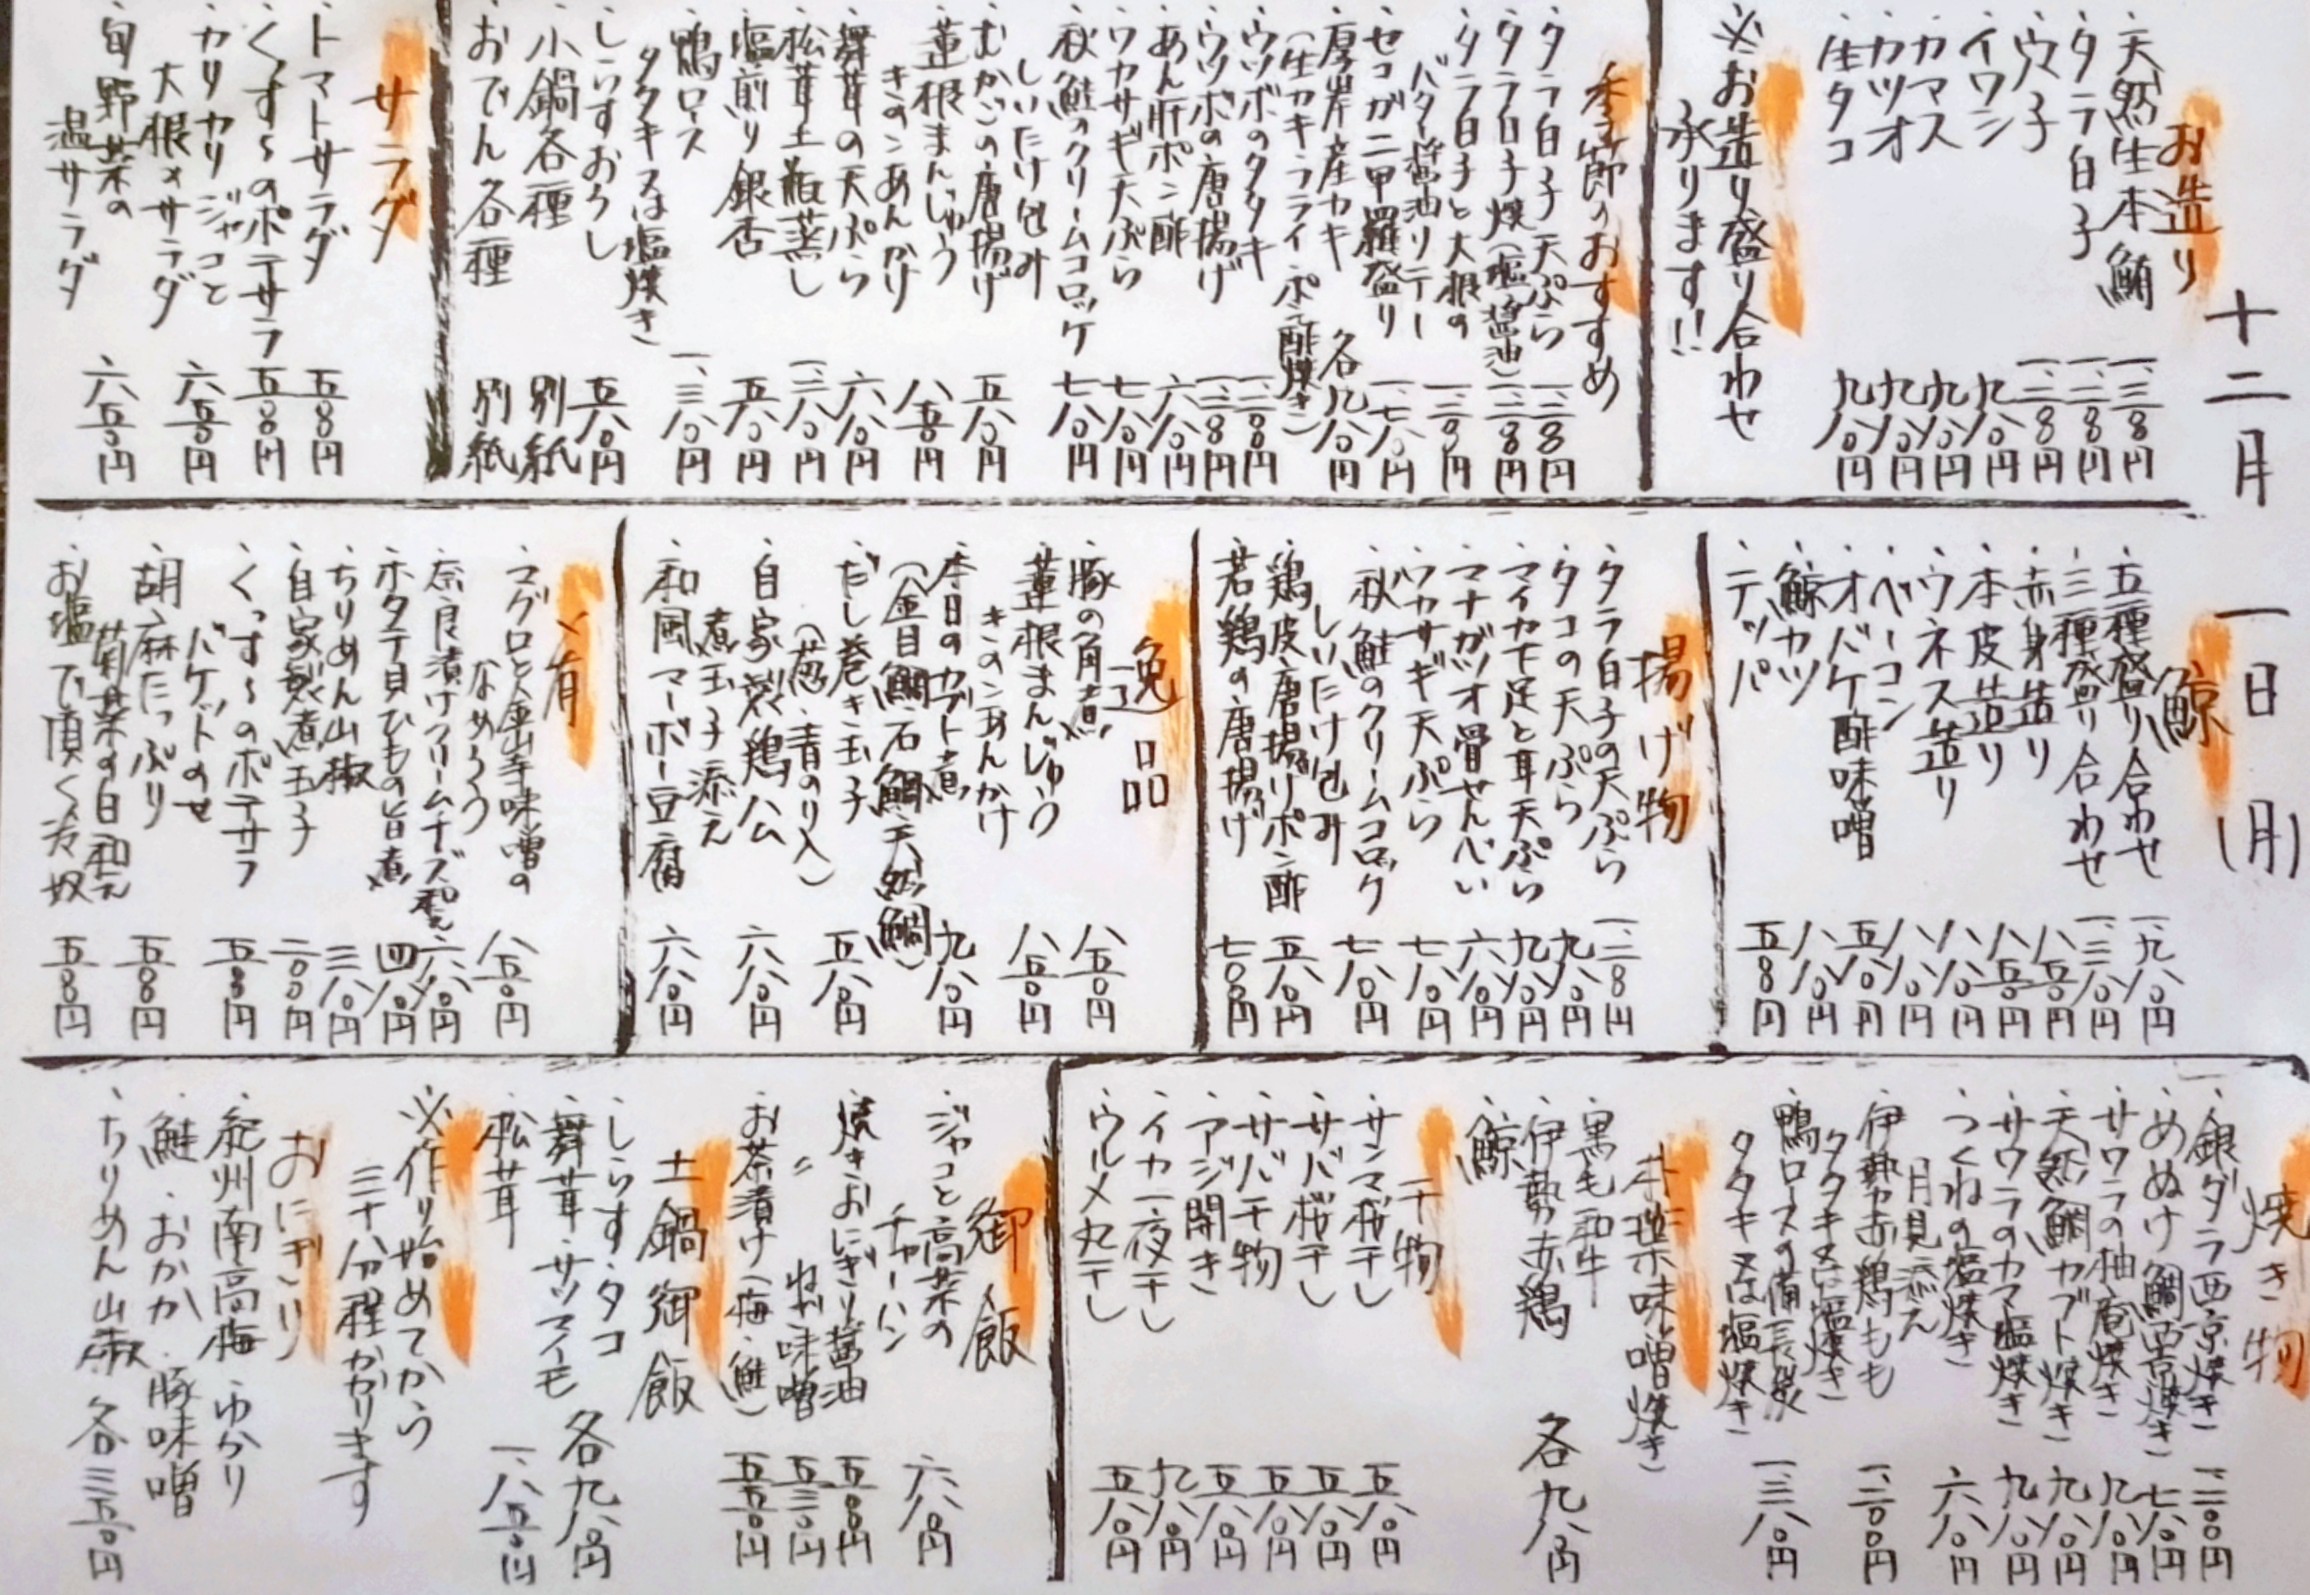 十二月 一日(月)
お造り
・天然生本鮪
・タラ白子
・イワシ 九八〇円
・カマス 九八〇円
・カツオ 九八〇円
・生タコ 九八〇円
※お造り盛り合わせ
承ります!!
季節のおすすめ
・タラ白子天ぷら
・タラ白子焼(塩・醤油)
・タラ白子と大根の
バター醤油ソテー
・セコガニ甲羅盛り 一、七八〇円
・厚岸産カキ 各九八〇円
(生カキ・フライ・ポン酢・焼き)
・ウツボのタタキ
・ウツボの唐揚げ
・あん肝ポン酢 六八〇円
・ワカサギ天ぷら 七八〇円
・秋鮭のクリームコロッケ 七八〇円
しいたけ包み
・むかごの唐揚げ 五八〇円
・蓮根まんじゅう 八五〇円
きのこあんかけ
・舞茸の天ぷら 六八〇円
・松茸土瓶蒸し
・塩煎り銀杏 五八〇円
・鴨ロース 一、三八〇円
タタキ又は塩焼き
・しらすおろし 五八〇円
・小鍋各種 別紙
・おでん各種 別紙
サラダ
・トマトサラダ 五〇〇円
・くっす〜のポテサラ 五〇〇円
・カリカリジャコと 六五〇円
大根のサラダ
・旬野菜の 六五〇円
温サラダ
鯨
・五種盛り合わせ 一、九八〇円
・三種盛り合わせ 一、三八〇円
・赤身造り 八五〇円
・本皮造り 八五〇円
・ウネス造り 八八〇円
・ベーコン 八八〇円
・オバケ酢味噌 五八〇円
・鯨カツ 八八〇円
・テッパ 五〇〇円
揚げ物
・タラ白子の天ぷら
・タコの天ぷら 九八〇円
・マイカ下足と耳天ぷら 九八〇円
・マナガツオ骨せんべい 六八〇円
・ワカサギ天ぷら 七八〇円
・秋鮭のクリームコロッケ 七八〇円
しいたけ包み
・鶏皮唐揚げポン酢 五八〇円
・若鶏の唐揚げ 七〇〇円
逸品
・豚の角煮 八五〇円
・蓮根まんじゅう 八五〇円
きのこあんかけ
・本日のカブト煮 九八〇円
(金目鯛・石鯛・天然鯛)
・だし巻き玉子 五八〇円
(葱・青のり入)
・自家製鶏ハム 六八〇円
煮玉子添え
・和風マーボー豆腐 六八〇円
〆肴
・マグロと金山寺味噌の 八五〇円
なめろう
・奈良漬けクリームチーズ和え 六八〇円
・ホタテ貝ひもの旨煮 四八〇円
・ちりめん山椒 三八〇円
・自家製煮玉子 二〇〇円
・くっす〜のポテサラ 五〇〇円
バケットのせ
・胡麻たっぷり 五〇〇円
菊菜の白和え
・お塩で頂く冷奴 五〇〇円
焼き物
・銀ダラ西京焼き
・めぬけ鯛西京焼き
・サワラの柚庵焼き 九八〇円
・天然鯛カブト焼き 九八〇円
・サワラのカマ塩焼き 九八〇円
・つくねの塩焼き 六八〇円
月見添え
・伊勢赤鶏もも
タタキ又は塩焼き
・鴨ロースの備長炭 一、三八〇円
タタキ又は塩焼き
朴葉味噌焼き
・黒毛和牛
・伊勢赤鶏 各九八〇円
・鯨
干物
・サンマ桜干し 五八〇円
・サバ桜干し 五八〇円
・サバ干物 五八〇円
・アジ開き 五八〇円
・イカ一夜干し 九八〇円
・ウルメ丸干し 五八〇円
御飯
・ジャコと高菜の 六八〇円
チャーハン
・焼きおにぎり醤油 五〇〇円
・〃 ねぎ味噌 五三〇円
・お茶漬け(梅・鮭) 五五〇円
土鍋御飯
・しらす・タコ
・舞茸・サツマイモ 各九八〇円
・松茸 一、八五〇円
※作り始めてから
三十分程かかります
おにぎり
・紀州南高梅・ゆかり
・鮭・おかか・豚味噌
・ちりめん山椒 各三五〇円